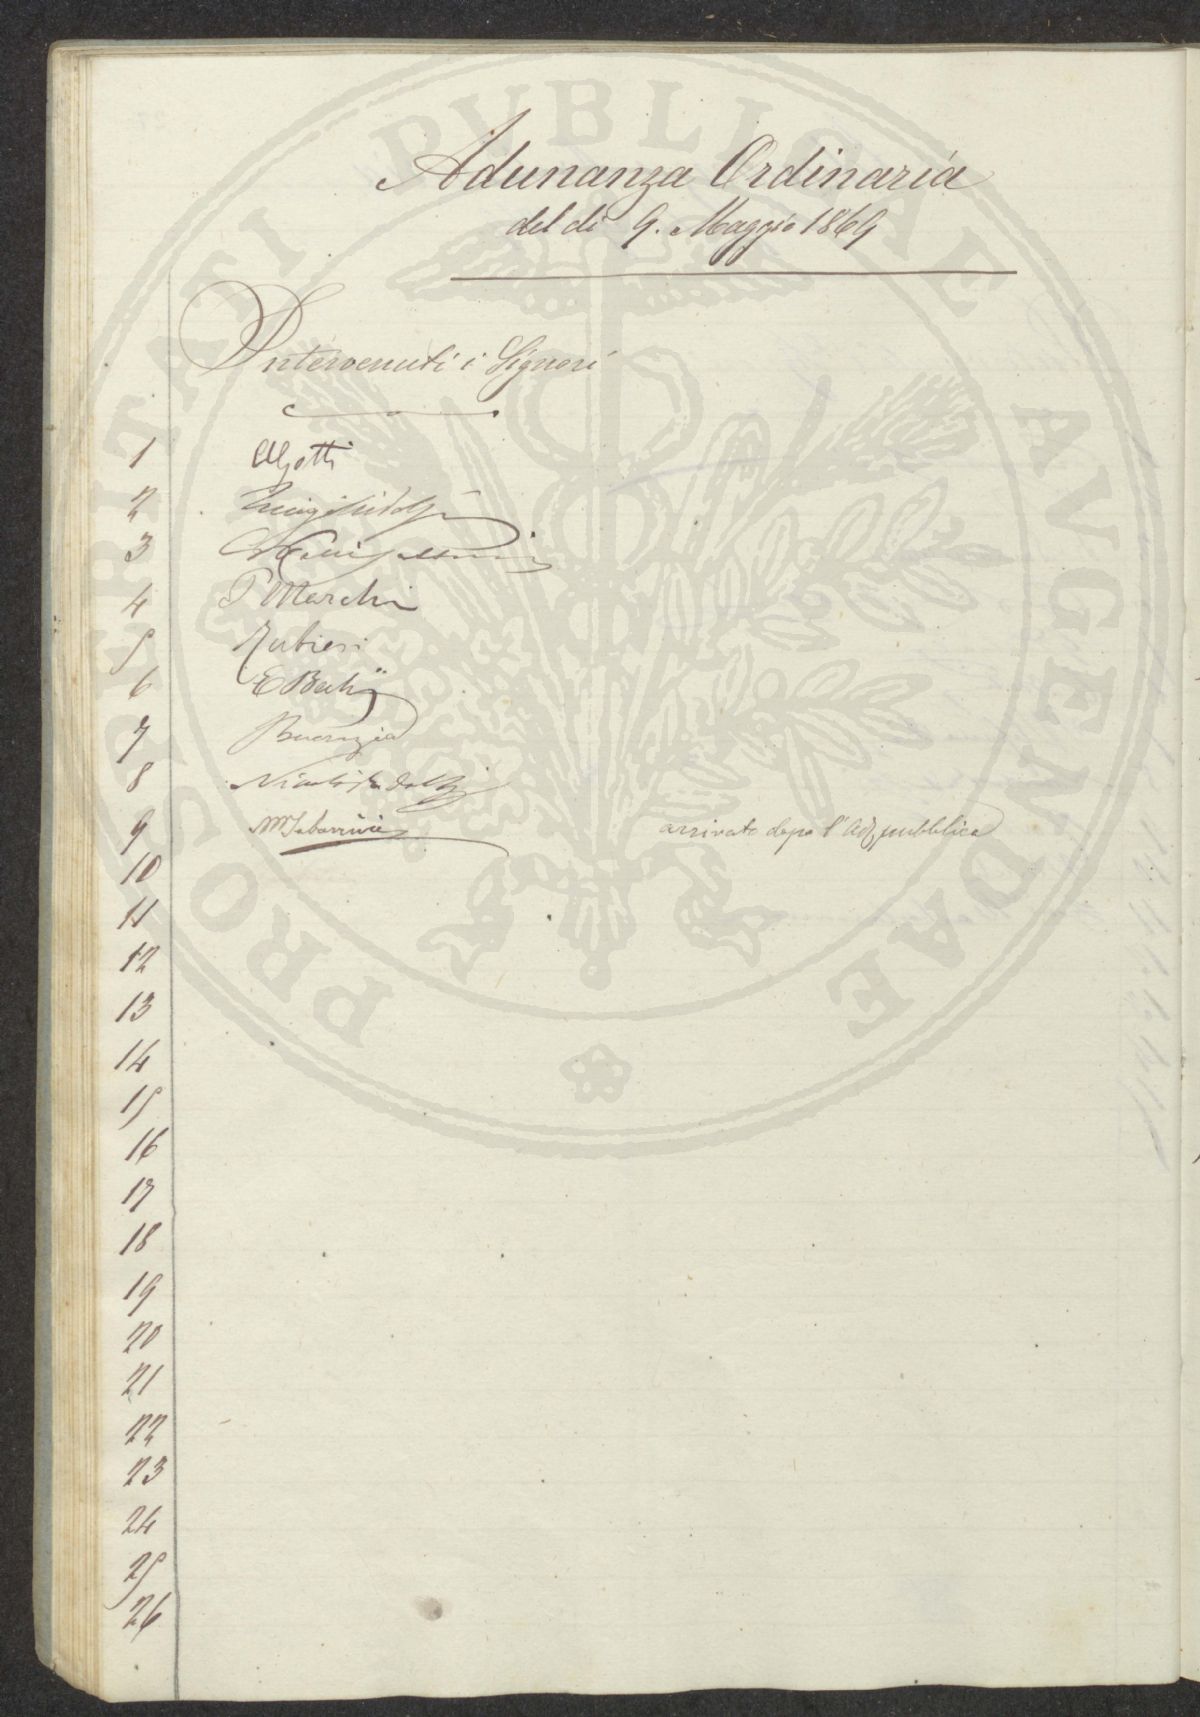 PROSPERITATI PUBLICAE AVGENDAE
Adunanza Ordinaria
del di 9. Maggio 1869
Intervenuti i Signori
1
2 Luigi Ridolfi
3
4 P Marchi
5 Rubieri
6 E Bechi
7
8 Niccolò Ridolfi
9 M Tabarrini arrivato dopo l'Adza pubblica
10
11
12
13
14
15
16
17
18
19
20
21
22
23
24
25
26